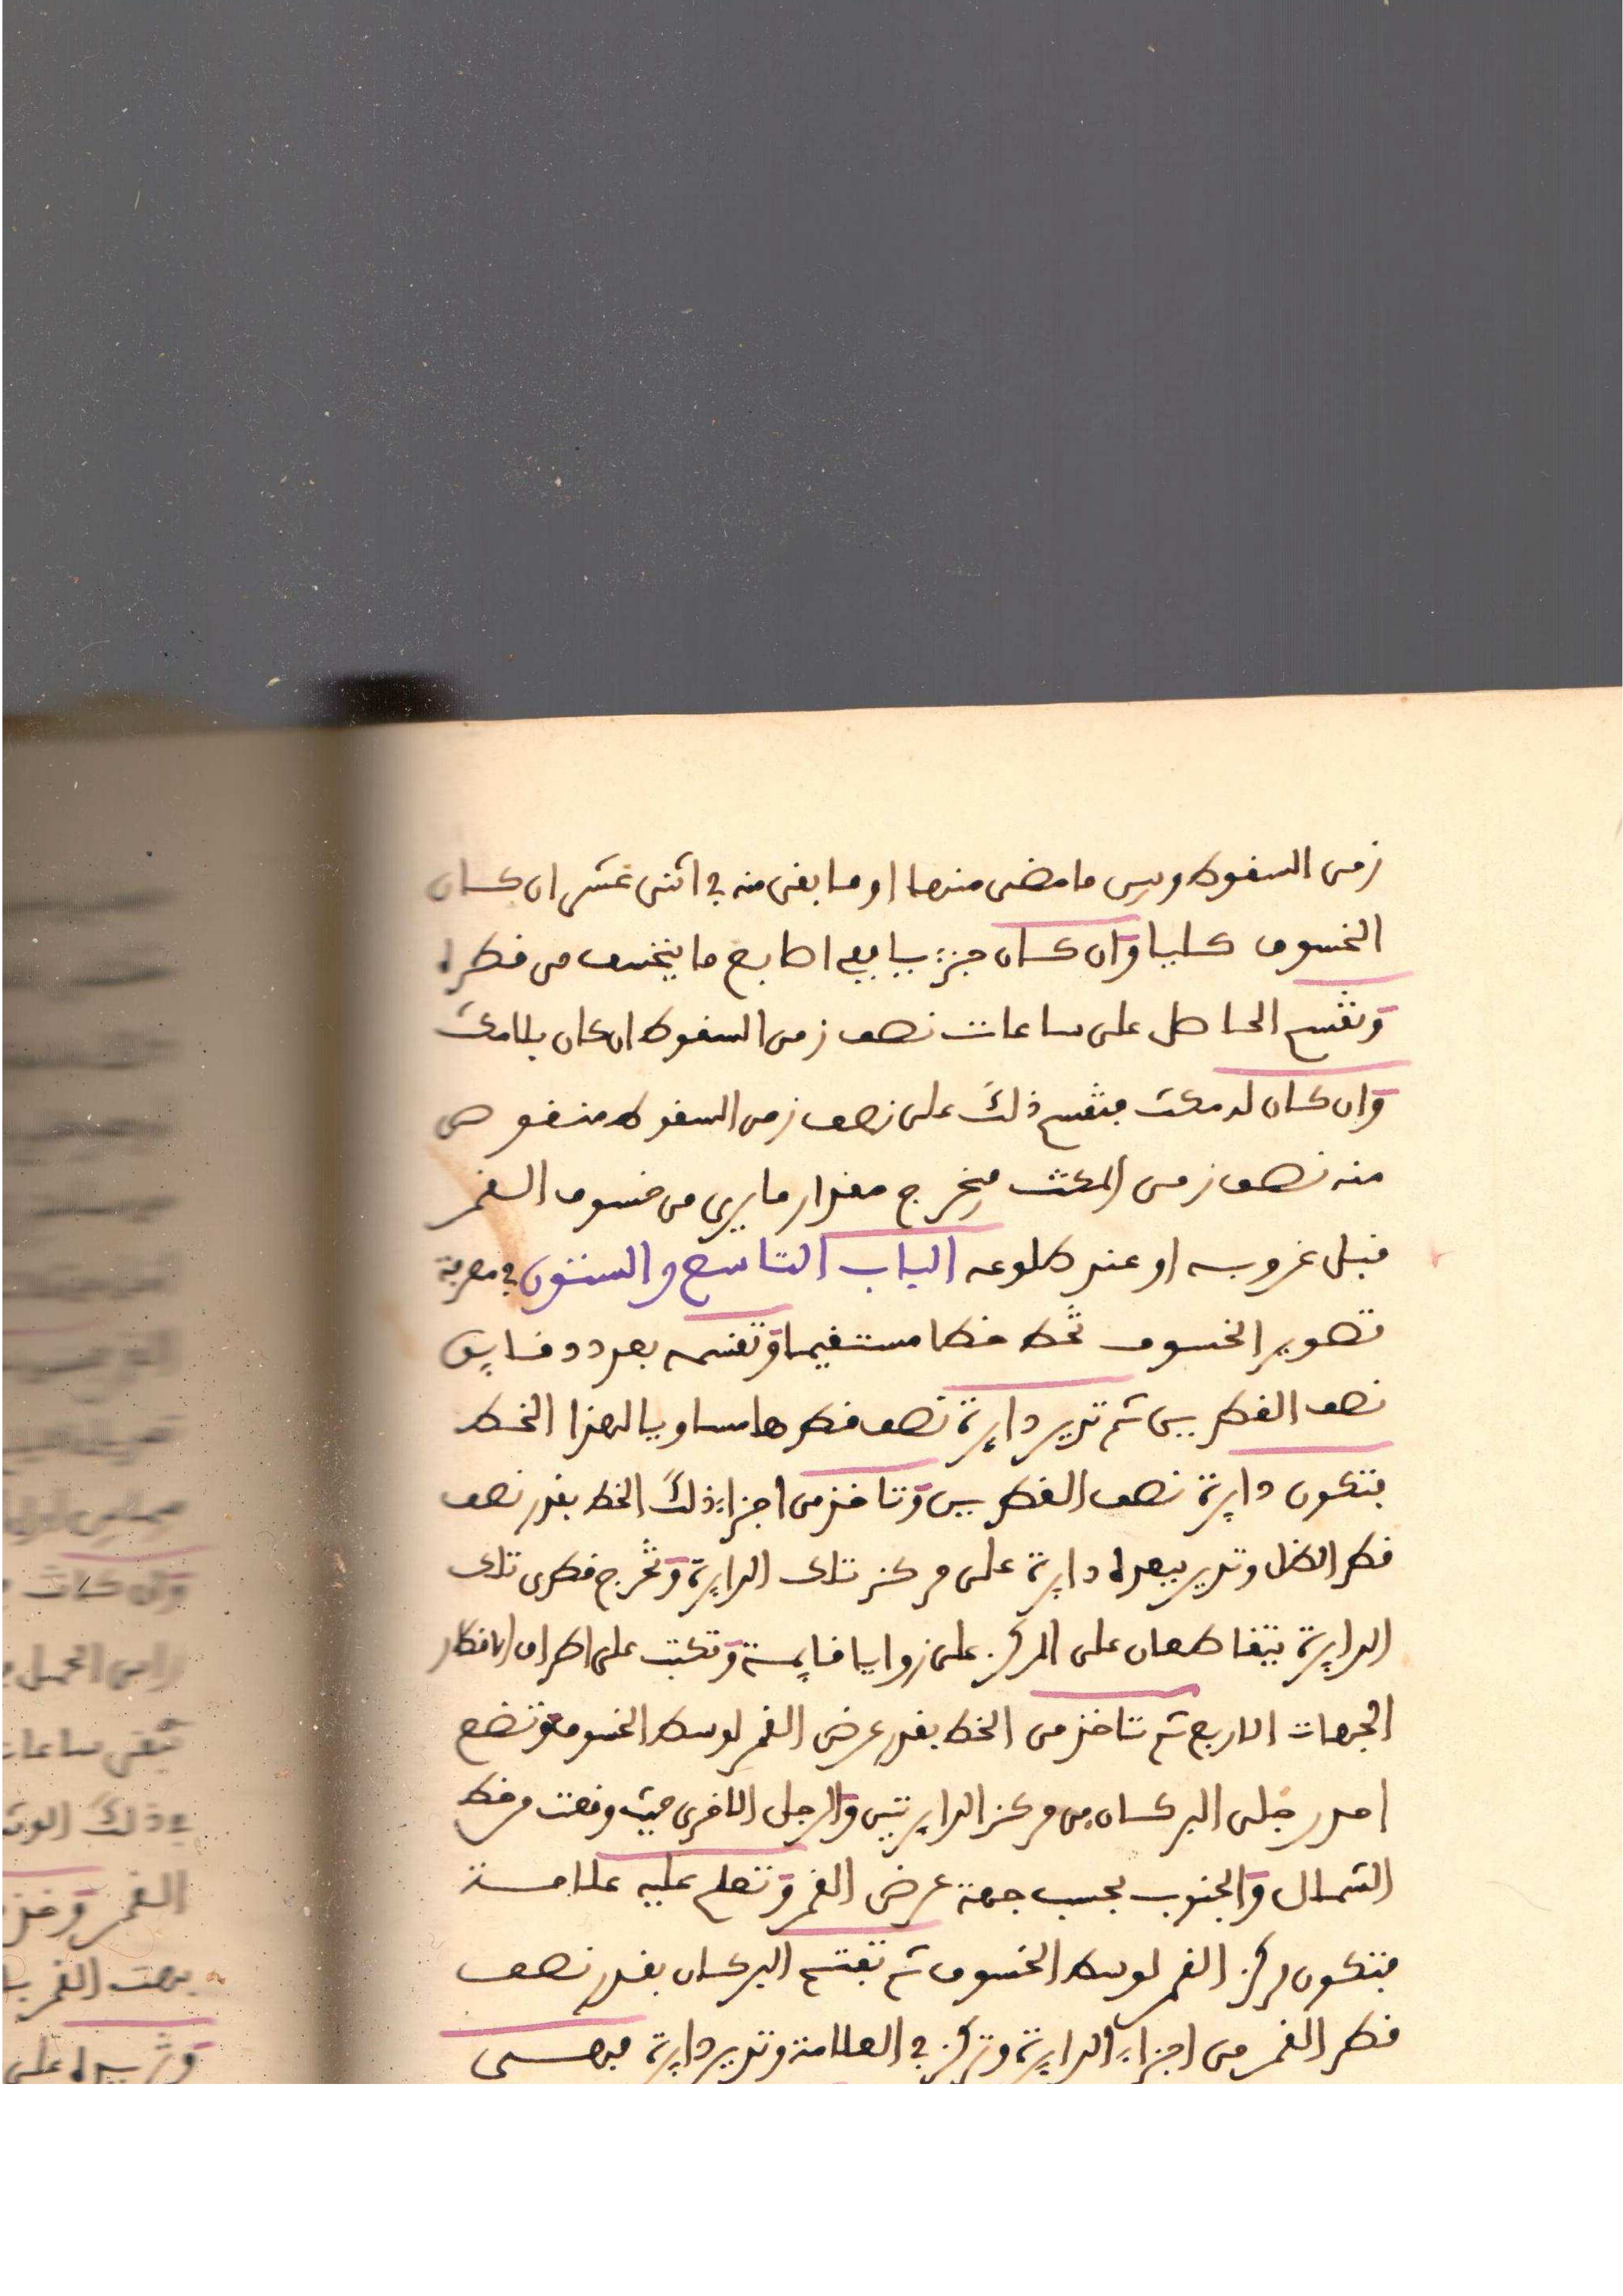 زمن السقوط وبين ما مضى منها او ما بقى منه في اثنى عشر ان كان
الخسوف كليا وان كان جزييا ففي اصابع ما ينخسف من قطره
وتقسم الحاصل على ساعات نصف زمن السقوط ان كان بلا مكث
وان كان له مكث فتقسم ذلك على نصف زمن السقوط منقوص
منه نصف زمن المكث فيخرج مقدار ما يرى من خسوف القمر
قبل غروبه او عند طلوعه الباب التاسع والستون في معرفة
تصوير الخسوف تخط خطا مستقيما وتقسمه بعدد دقايق
نصف القطرين ثم تدير دايرة نصف قطرها مساويا لهذا الخط
فتكون دايرة نصف القطرين وتاخذ من اجزاء ذلك الخط بقدر نصف
قطر الظل وتدير ببعده دايرة على مركز تلك الدايرة وتخرج قطرى تلك
الدايرة يتقاطعان على المركز على زوايا قايمة وتكتب على اطراف الاقطار
الجهات الاربع ثم تاخذ من الخط بقدر عرض القمر لوسط الخسوف وتضع
احد رجلى البركان في مركز الدايرتين والرجل الاخرى حيث وقعت من خط
الشمال والجنوب بحسب جهة عرض القمر وتعلم عليه علامة
فتكون مركز القمر لوسط الخسوف ثم تفتح البركان بقدر نصف
قطر القمر من اجزاء الدايرة وتركز في العلامة وتدير دايرة فهى
وان كانت
راس الحمل
تبقى ساعات
في ذلك
القمر وخذ
جهت القمر